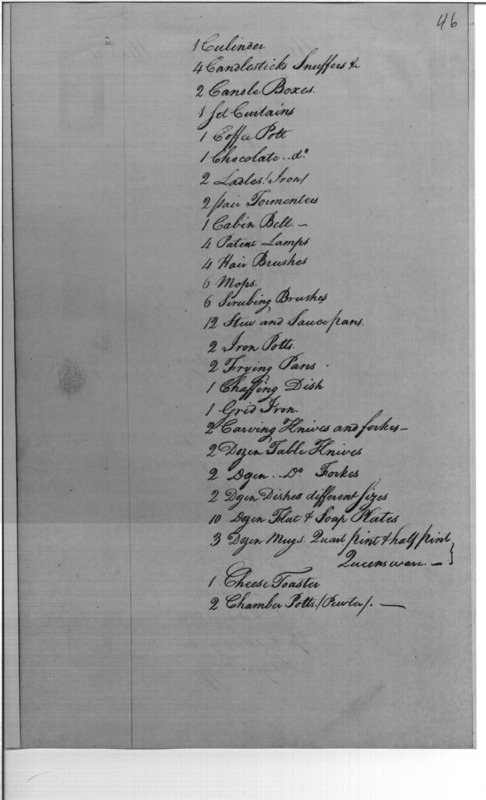 46
1 Culinder
4 Candlesticks Snuffers &c
2 Candle Boxes.
1 Set Curtains
1 Coffee Pott
1 Chocolate .. do
2 Ladles (Iron)
2 pair Tormenters
1 Cabin Bell —
4 Patent Lamps
4 Hair Brushes
6 Mops.
6 Scrubing Brushes
12 Stew and Sauce pans.
2 Iron Potts.
2 Frying Pans .
1 Chaffing Dish
1 Grid Iron.
2 Carving Knives and forkes —
2 Dozen Table Knives
2 Dozen .. Do Forkes
2 Dozen Dishes different Sizes
10 Dozen Flat & Soap Plates
3 Dozen Mugs Quart pint & half pint
Queensware — }
1 Cheese Toaster
2 Chamber Potts (Pewter). —